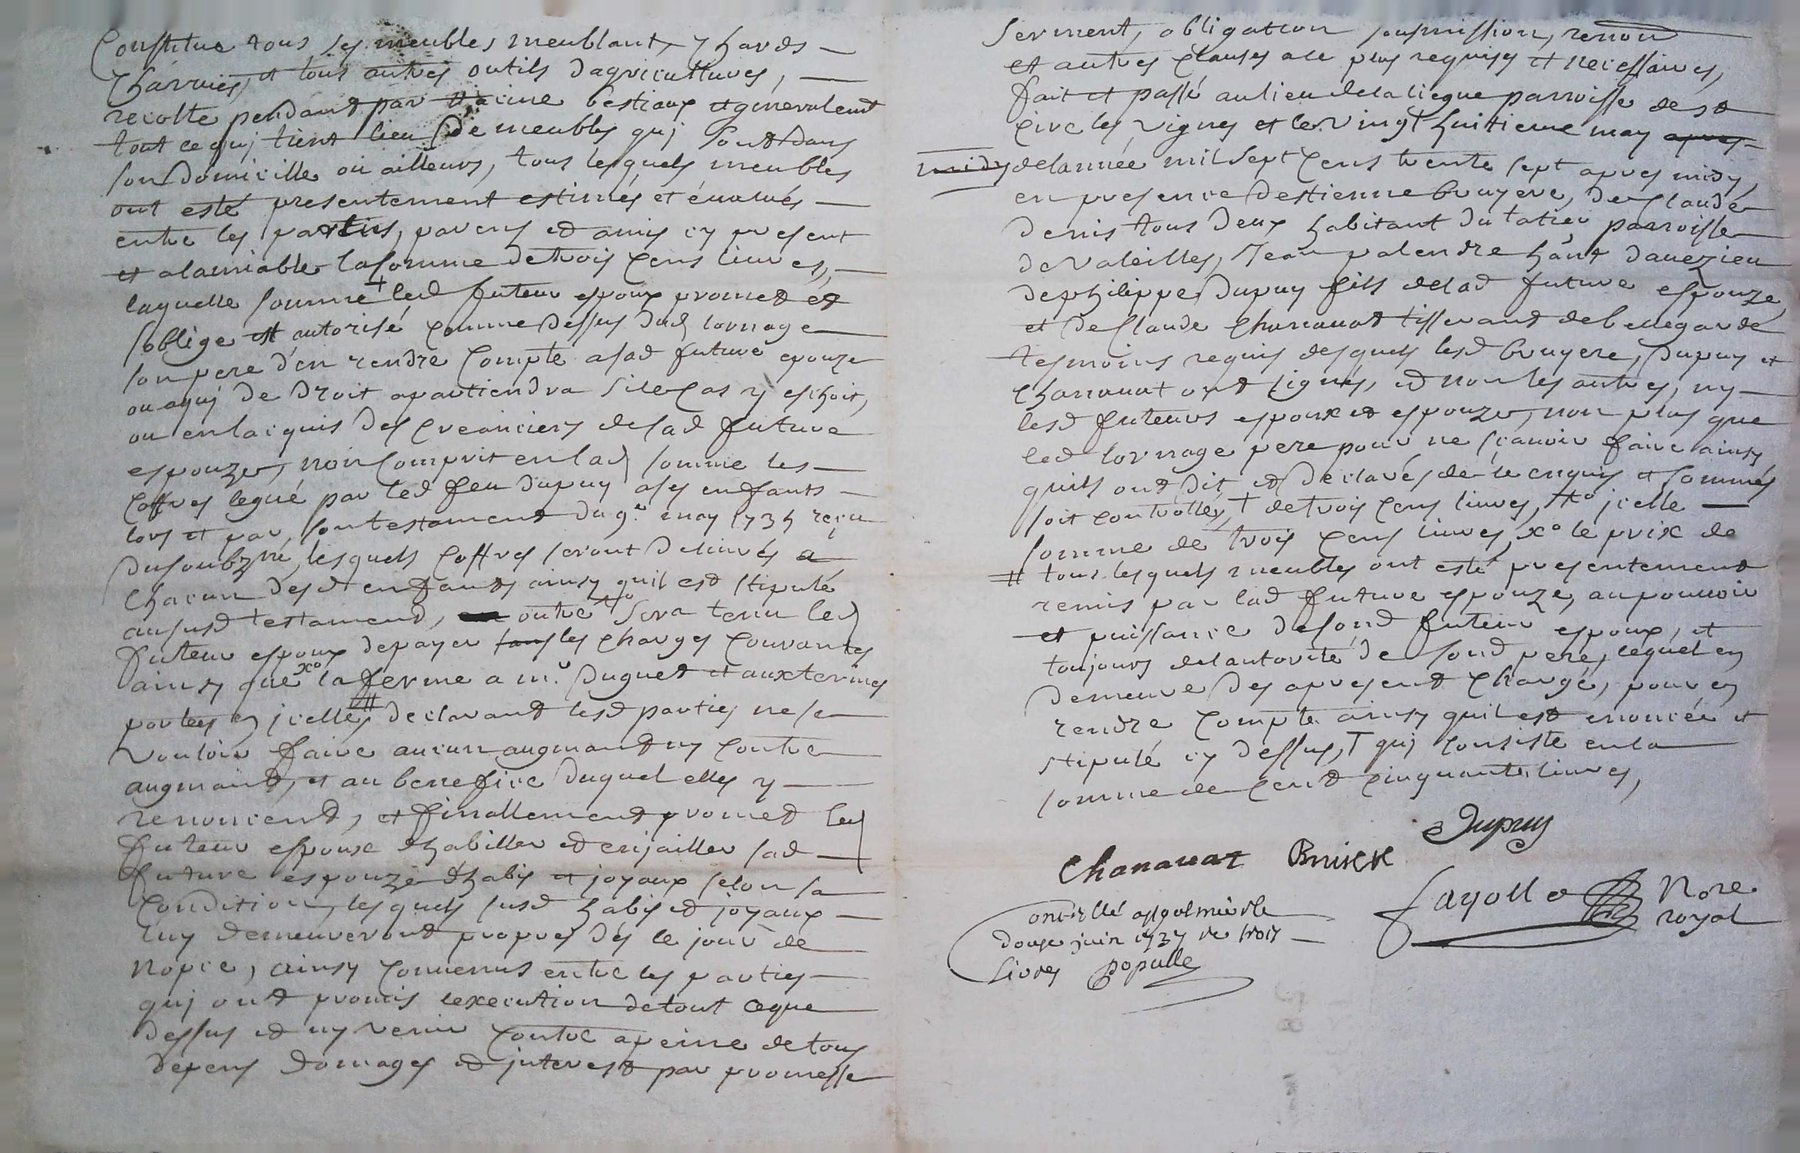 Constitue tous ses meubles meublants, hards
charrues, et tous autres outils dagricultures,
recolte pendant par racine bestiaux et generalemt
tout ce quj tient lieu de meubles quj sont dans
son domicille ou ailleurs, tous lesquels meubles
ont esté presentement estimés et évalués
entre les parties, parens et amis cy present
et alamiable la somme de trois cens livres,
laquelle somme led futeur espoux promet et
soblige et autorisé comme dessus dud tornage
son pere den rendre compte asad future epouze
ou aquj de droit apartiendra sile cas y eschoit,
ou en lacquis des creanciers desad future
espouze, non comprit en lad somme les
coffres legué par led feu dupuy ases enfants
lors et par son testament du 9e may 173 reçu
du soubzné, lesquels coffres seront delivrés a
chacun desd enfants ainsy quil est stipulé
ausust testament, outre sera tenu led
futeur espoux depayer tous les charges courantes
ainsy que xo la ferme a mr. duguet et aux termes
portées en jcelle, declarant lesd parties ne se
vouloir faire aucun augmant ny contre
augmant, et au benefice duquel elles y
renoncent, et finallement promet led
futeur espoux dhabiller et enjailler sad
future espouze dhabis et joyaux selon sa
condition, lesquels susd habis et joyaux
luy demeureront propres dès le jour de
nopce, ainsy convenus entre les parties
quj ont promis lexecution de tout ceque
dessus et ny venir contre a peine de tous
depens domages et jnterest par promesse
serment, obligation sousmission, renon
et autres clauses ace plus requises et necessaires,
fait et passé au lieu de la liegue parroisse de st
cire les vignes et le vingt huitieme may apres
midy delannée mil sept cens trente sept apres midy,
en presence destienne bruyere, de claude
denis tous deux habitant du tatieu parroisse
de valeilles, Jean palendre hant daveizieu
dephilippe dupuy fils delad future espouze,
et de claude chanavat tisserant de bellegarde
tesmoins requis desquels lesd bruyere, dupuy et
chanavat ont signés, et non les autres, ny
lesd futeurs espoux et espouze, non plus que
led tornage pere pour ne scavoir faire ainsy
quils ont dit et declarés de ce enquis et sommés
soit controllés, † de trois cens livres, #o jcelle
somme de trois cens livres, xo le prix de
# tous lesquels meubles ont esté presentement
remis par lad future espouze, au pouvoir
et puissance desond futeur espoux, et
toujours delautorité de sond pere, lequel en
demeure des apresent chargé, pour en
rendre compte ainsy quil est enoncée et
stipulé cy dessus, † quj consiste en la
somme de cent cinquante livres,
Dupuy
Chanauat Bruiere
fayolle Nore
royal
Controllé
douze juin 1737 re trois
livres populle